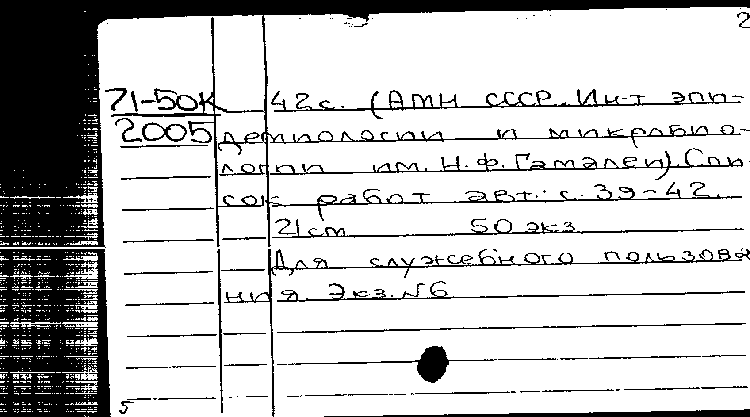 2
71-50К 42 с. (АМН СССР. Ин-т эпи-
2005 демиологии и микробио-
логии им. Н.Ф. Гамалеи) Спи-
сок работ авт.: с. 39-42.
21 см 50 экз
Для служебного пользова
ния Экз. №6
5